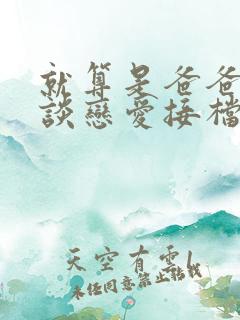 就算是爸爸
談戀愛接檔
天空有雲l
未经同意禁止转载